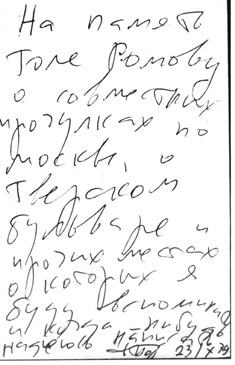 На память
Толе Ромову
о совместных
прогулках по
москве, о
Тверском
бульваре и
прочих местах
о которых я
буду вспоминать
и когда-нибудь
надеюсь напишу
23/X 79